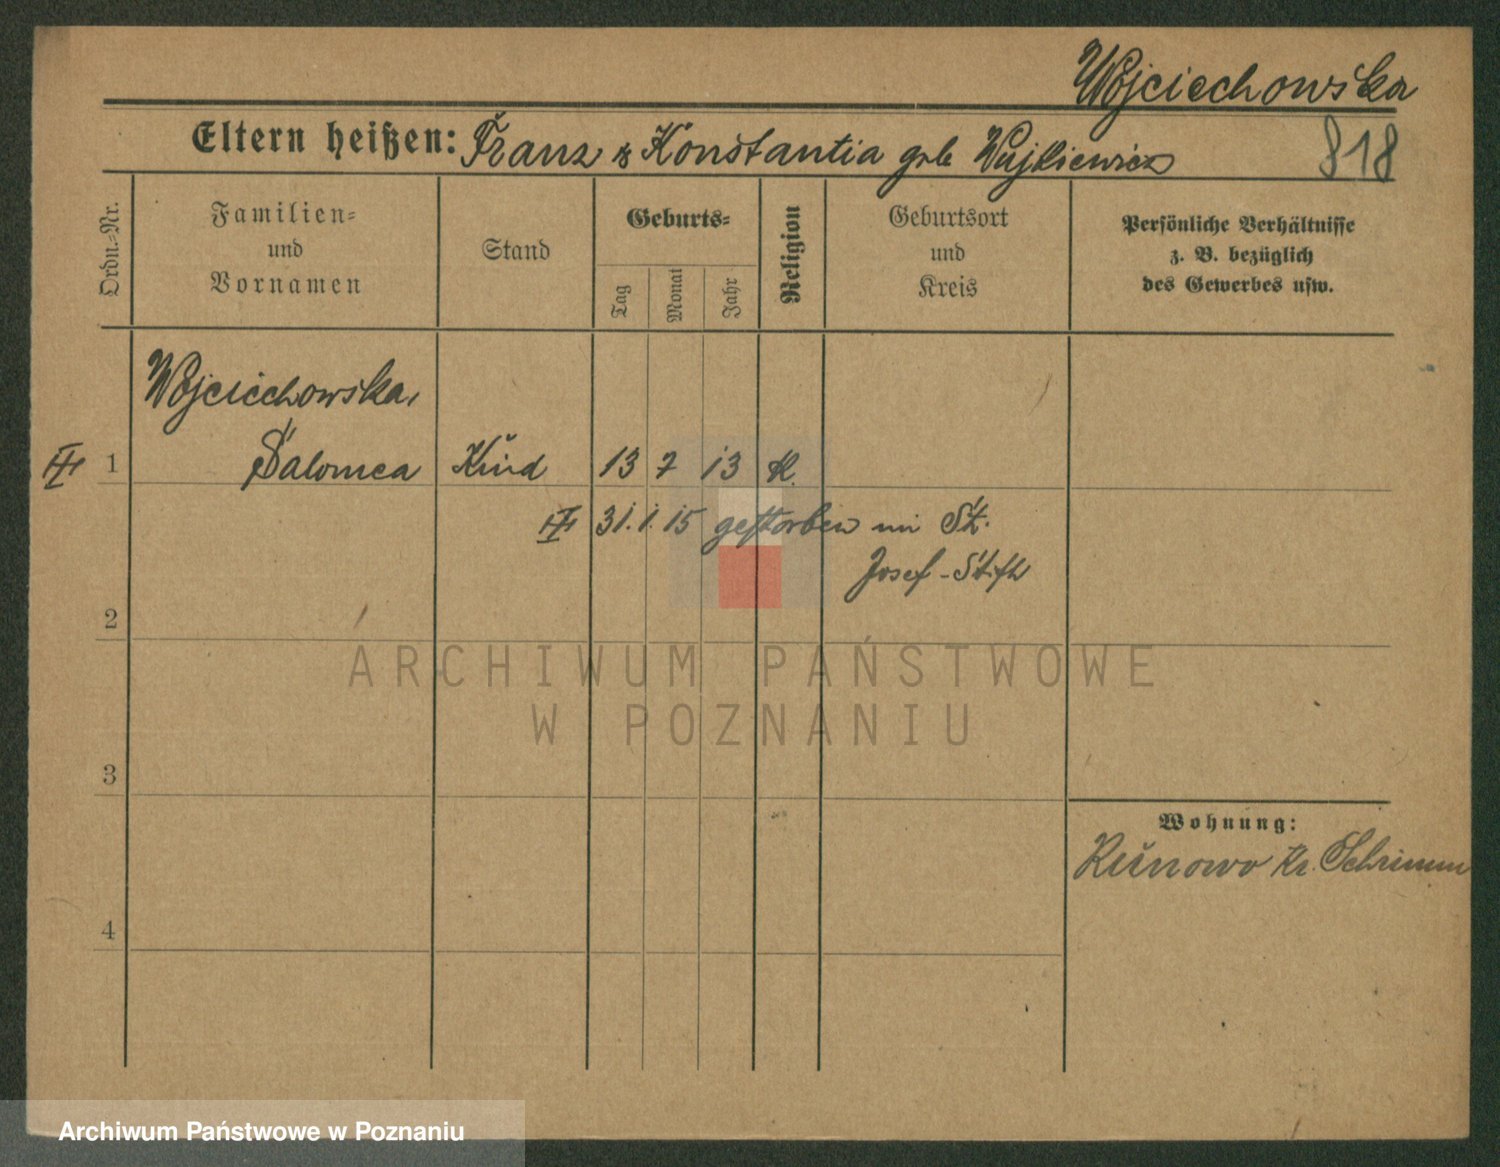 Wojciechowska
Eltern heißen: Franz & Konstantia geb Wujkiewicz
818
Ordn.-Nr.
Familien-
und
Vornamen
Stand
Geburts-
Tag
Monat
Jahr
Religion
Geburtsort
und
Kreis
Persönliche Verhältnisse
z. B. bezüglich
des Gewerbes usw.
Wojciechowska,
1 Salomea Kind 13 7 13 k.
31.1.15 gestorben im St.
Josef-Stift
2
ARCHIWUM PAŃSTWOWE
W POZNANIU
3
Wohnung:
Kr. Schrimm
4
Archiwum Państwowe w Poznaniu